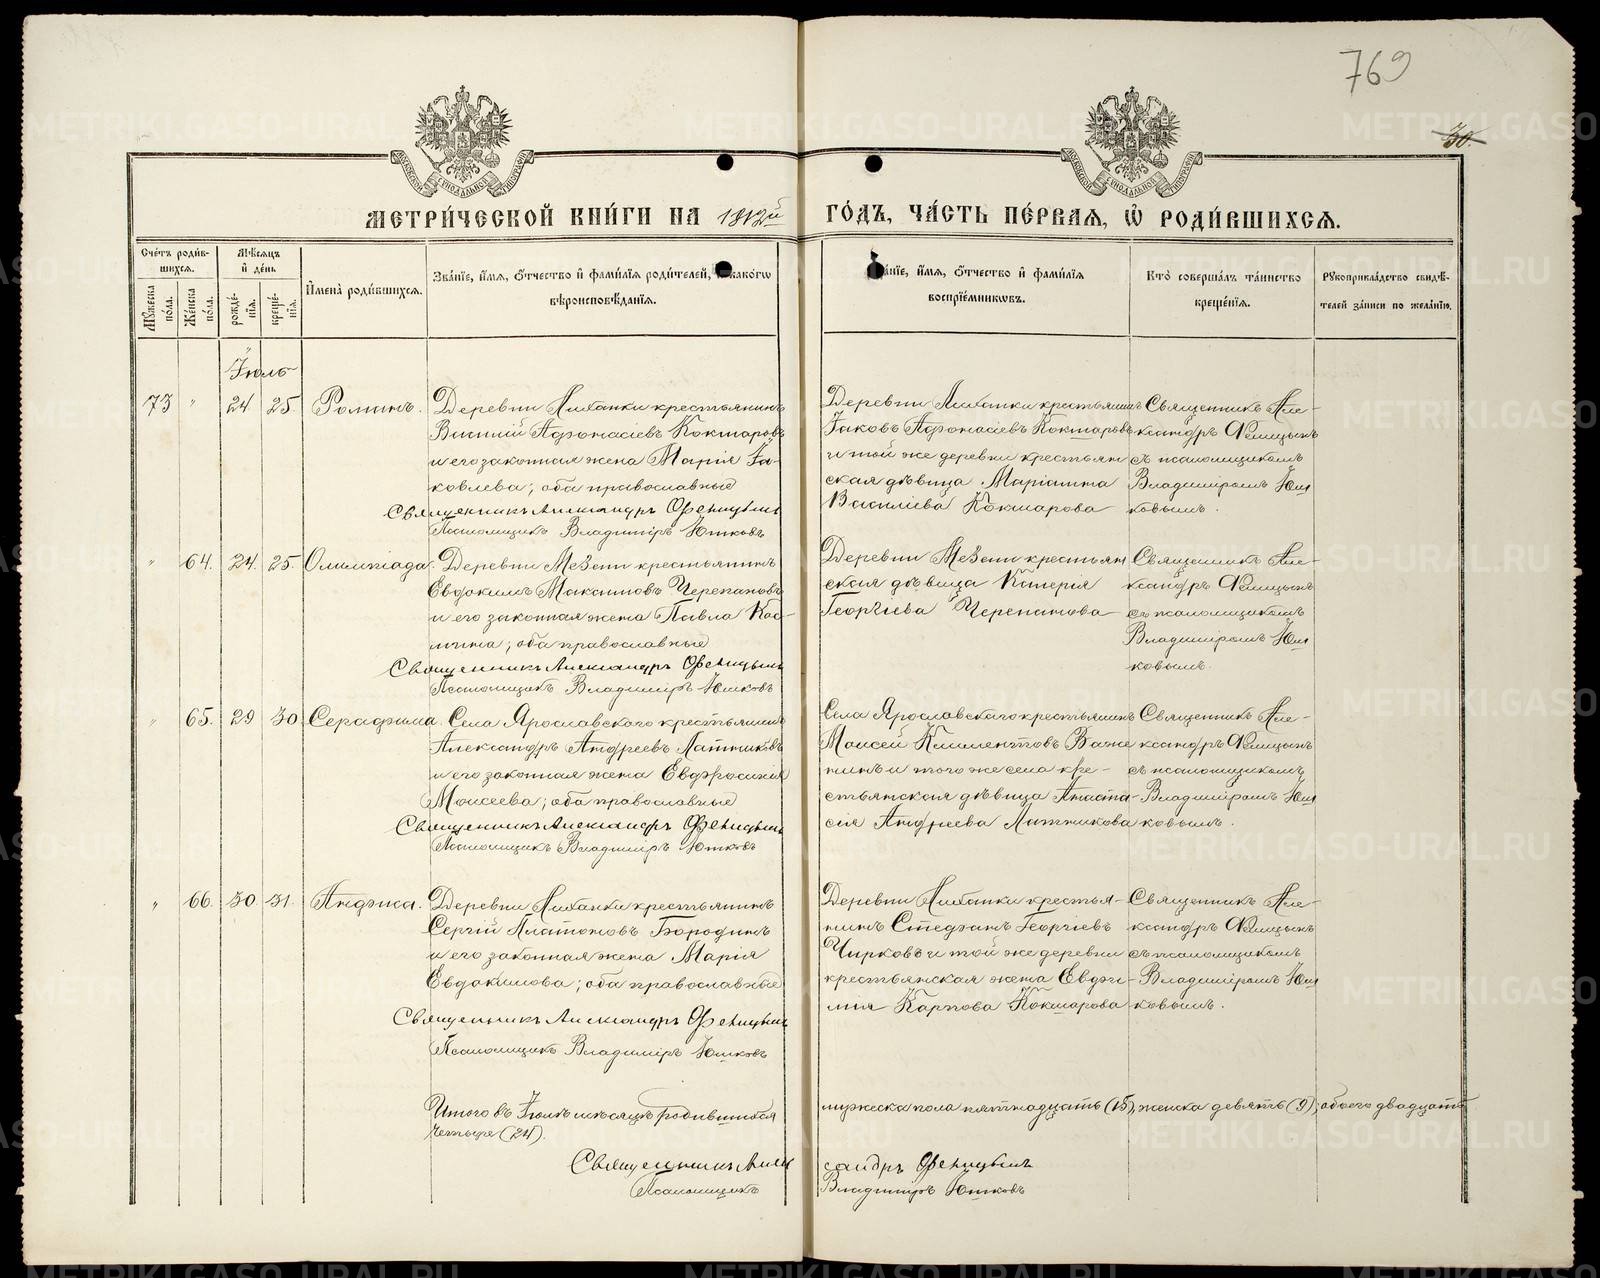 769
30.
МЕТРИ́ЧЕСКОЙ КНИ́ГИ НА 1912й ГО́ДЪ, ЧА́СТЬ ПЕ́РВАЯ, Ѡ РОДИ́ВШИХСЯ.
Сче́тъ роди́вшихся.
Мꙋ́жеска по́ла.
Же́нска по́ла.
Мѣ́сяцъ и҆ де́нь.
рожде́нїя.
креще́нїя.
И҆мена̀ роди́вшихся.
Зва́нїе, и҆́мя, ѻ҆́тчество и҆ фами́лїя роди́телей, и҆ како́гѡ
вѣроисповѣ́данїя.
Зва́нїе, и҆́мя, ѻ҆́тчество и҆ фами́лїя
воспрїе́мниковъ.
Кто̀ соверша́лъ та́инство
креще́нїя.
Рꙋкоприкла́дство свидѣ́-
телей за́писи по жела́нїю.
Іюль
73 " 24 25. Романъ.
Деревни Лиханки крестьянинъ
Василій Афонасіевъ Кокшаровъ
и его законная жена Марія Іа-
ковлева; оба православные
Священникъ Александръ Феницынъ
Псаломщикъ Владиміръ Юшковъ
Деревни Лиханки крестьянинъ
Іаковъ Афонасіевъ Кокшаровъ
и той же деревни крестьян
ская дѣвица Маріамна
Василіева Кокшарова
Священникъ Але-
ксандръ Феницынъ
съ псаломщикомъ
Владиміромъ Юш
ковымъ.
" 64. 24. 25. Олимпіада.
Деревни Мезени крестьянинъ
Евдокимъ Максимовъ Черепановъ
и его законная жена Павла Кос-
мина; оба православные
Священникъ Александръ Феницынъ
Псаломщикъ Владиміръ Юшковъ
Деревни Мезени крестьян
ская дѣвица
Георгіева Черепанова
Священникъ Але-
ксандръ Феницынъ
съ псаломщикомъ
Владиміромъ Юш
ковымъ.
" 65. 29 30 Серафима.
Села Ярославского крестьянинъ
Александръ Андреевъ Латниковъ
и его законная жена Евфросинія
Моисеева; оба православные
Священникъ Александръ Феницынъ
Псаломщикъ Владиміръ Юшковъ
Села Ярославского крестьянинъ
Моисей Климентовъ Важе
нинъ и того же села кре-
стьянская дѣвица Анаста-
сія Андреева Латникова
Священникъ Але-
ксандръ Феницынъ
съ псаломщикомъ
Владиміромъ Юш
ковымъ.
" 66. 30 31. Анфиса.
Деревни Лиханки крестьянинъ
Сергій Платоновъ Бородинъ
и его законная жена Марія
Евдокимова; оба православные
Священникъ Александръ Феницынъ
Псаломщикъ Владиміръ Юшковъ
Деревни Лиханки крестья-
нинъ Стефанъ Георгіевъ
Чирковъ и той же деревни
крестьянская жена Евфи-
мія Карпова Кокшарова
Священникъ Але-
ксандръ Феницынъ
съ псаломщикомъ
Владиміромъ Юш
ковымъ.
Итого въ Іюлѣ мѣсяцѣ родившихся мужеска пола пятнадцать (15), женска девять (9); обоего двадцать
четыре (24).
Священникъ Александръ Феницынъ
Псаломщикъ Владиміръ Юшковъ